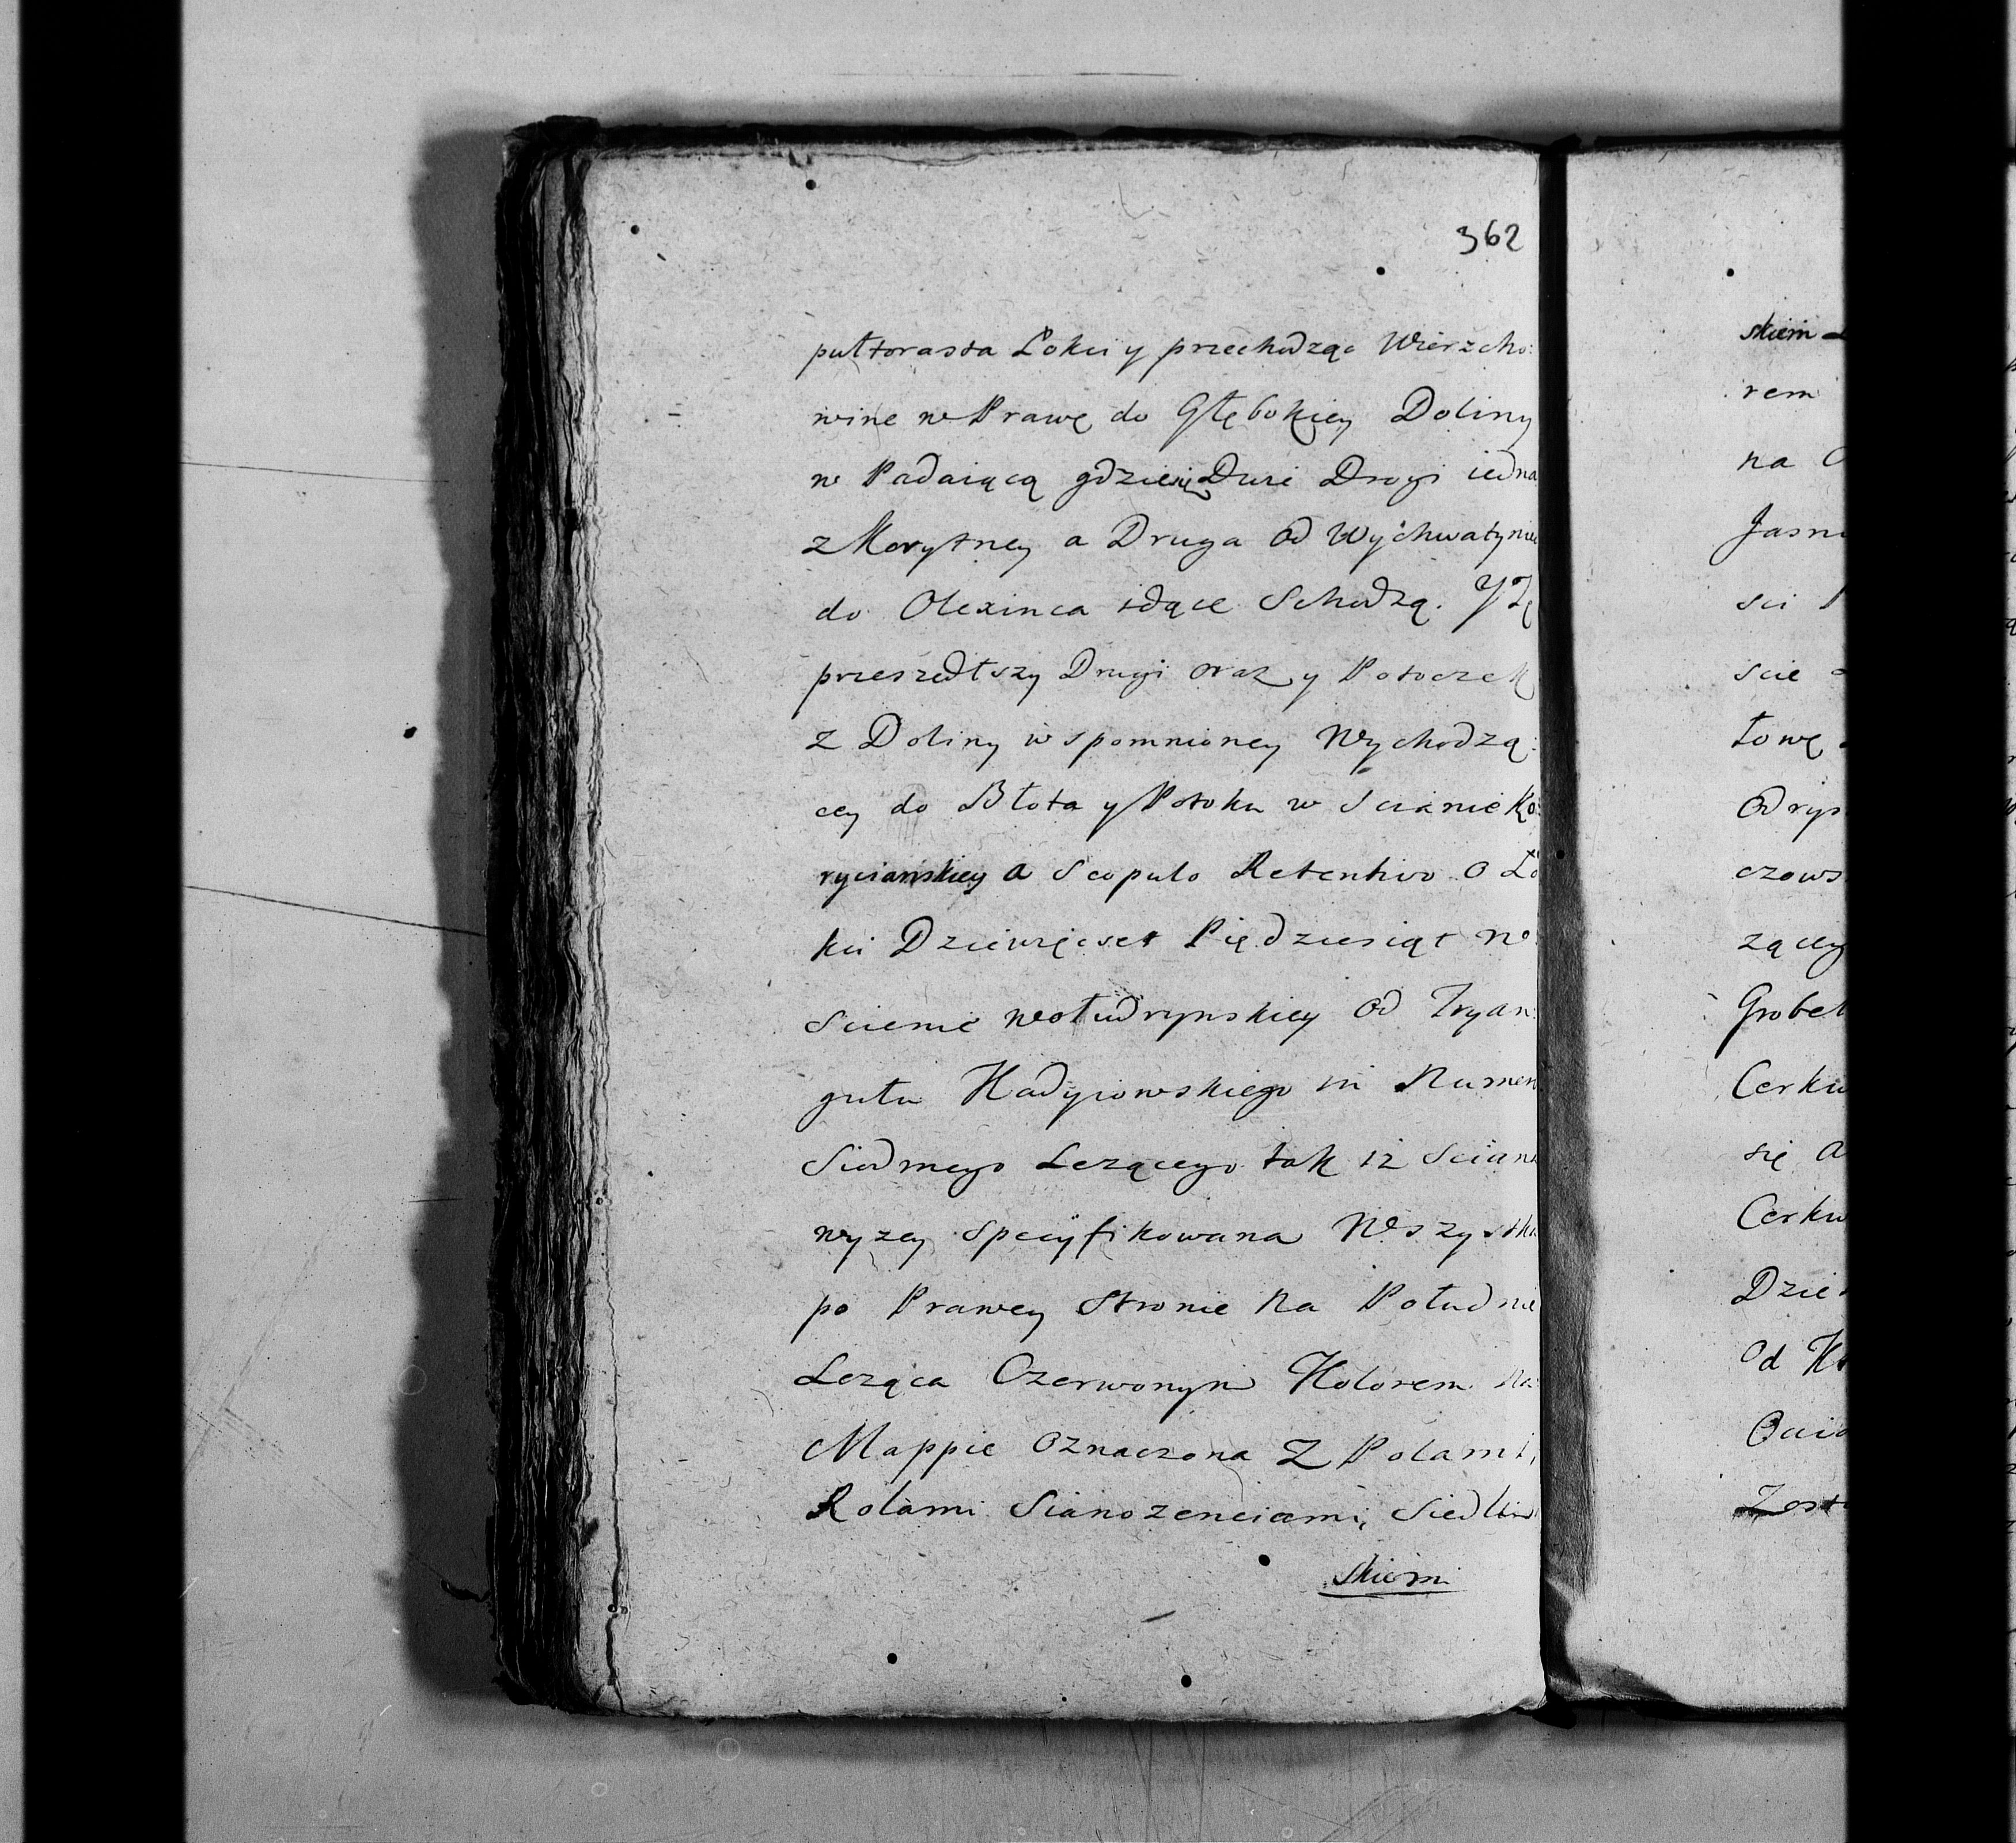 362
pułtorasta Łokci y przechodząc Wierzcho:
winę w Prawę do Głębokiey Doliny
w Padaiącą gdzie się Dwie Drogi iedna
z Korytney a Druga od Wychwatyniec
do Olexinca idące Schodzą. Y Tę
przeszedłszy Drugi oraz y Potoczek
z Doliny wspomnioney Wychodzą:
cey do Błota y Potoku w Scianie Ko:
ryciańskiey a Scopulo Retentivo o Ło
kci Dziewięcset Piędziesiąt w
Scienie wołudrynskiey od Tryan:
gułu Kadyiowskiego in Numero
Siodmego Leżącego tak iż Sciana
wyzey specyfikowana Wszystka
po Prawey Stronie Na Południe
Leząca Czerwonym Kolorem na
Mappie Oznaczona Z Polami,
Rolami Sianozenciami, Siedlis
skiemi
skiem
rem
na
Jasn
sci
scie
łowę
Odryn
czows
zącey
Grobel
Cerkw
się a
Cerkw
Dzie
Od
Zost